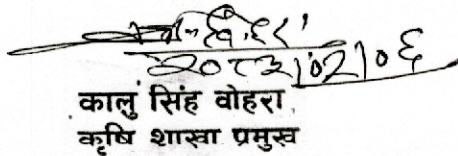 २०८२।०२।०६
कालु सिंह वोहरा
कृषि शाखा प्रमुख